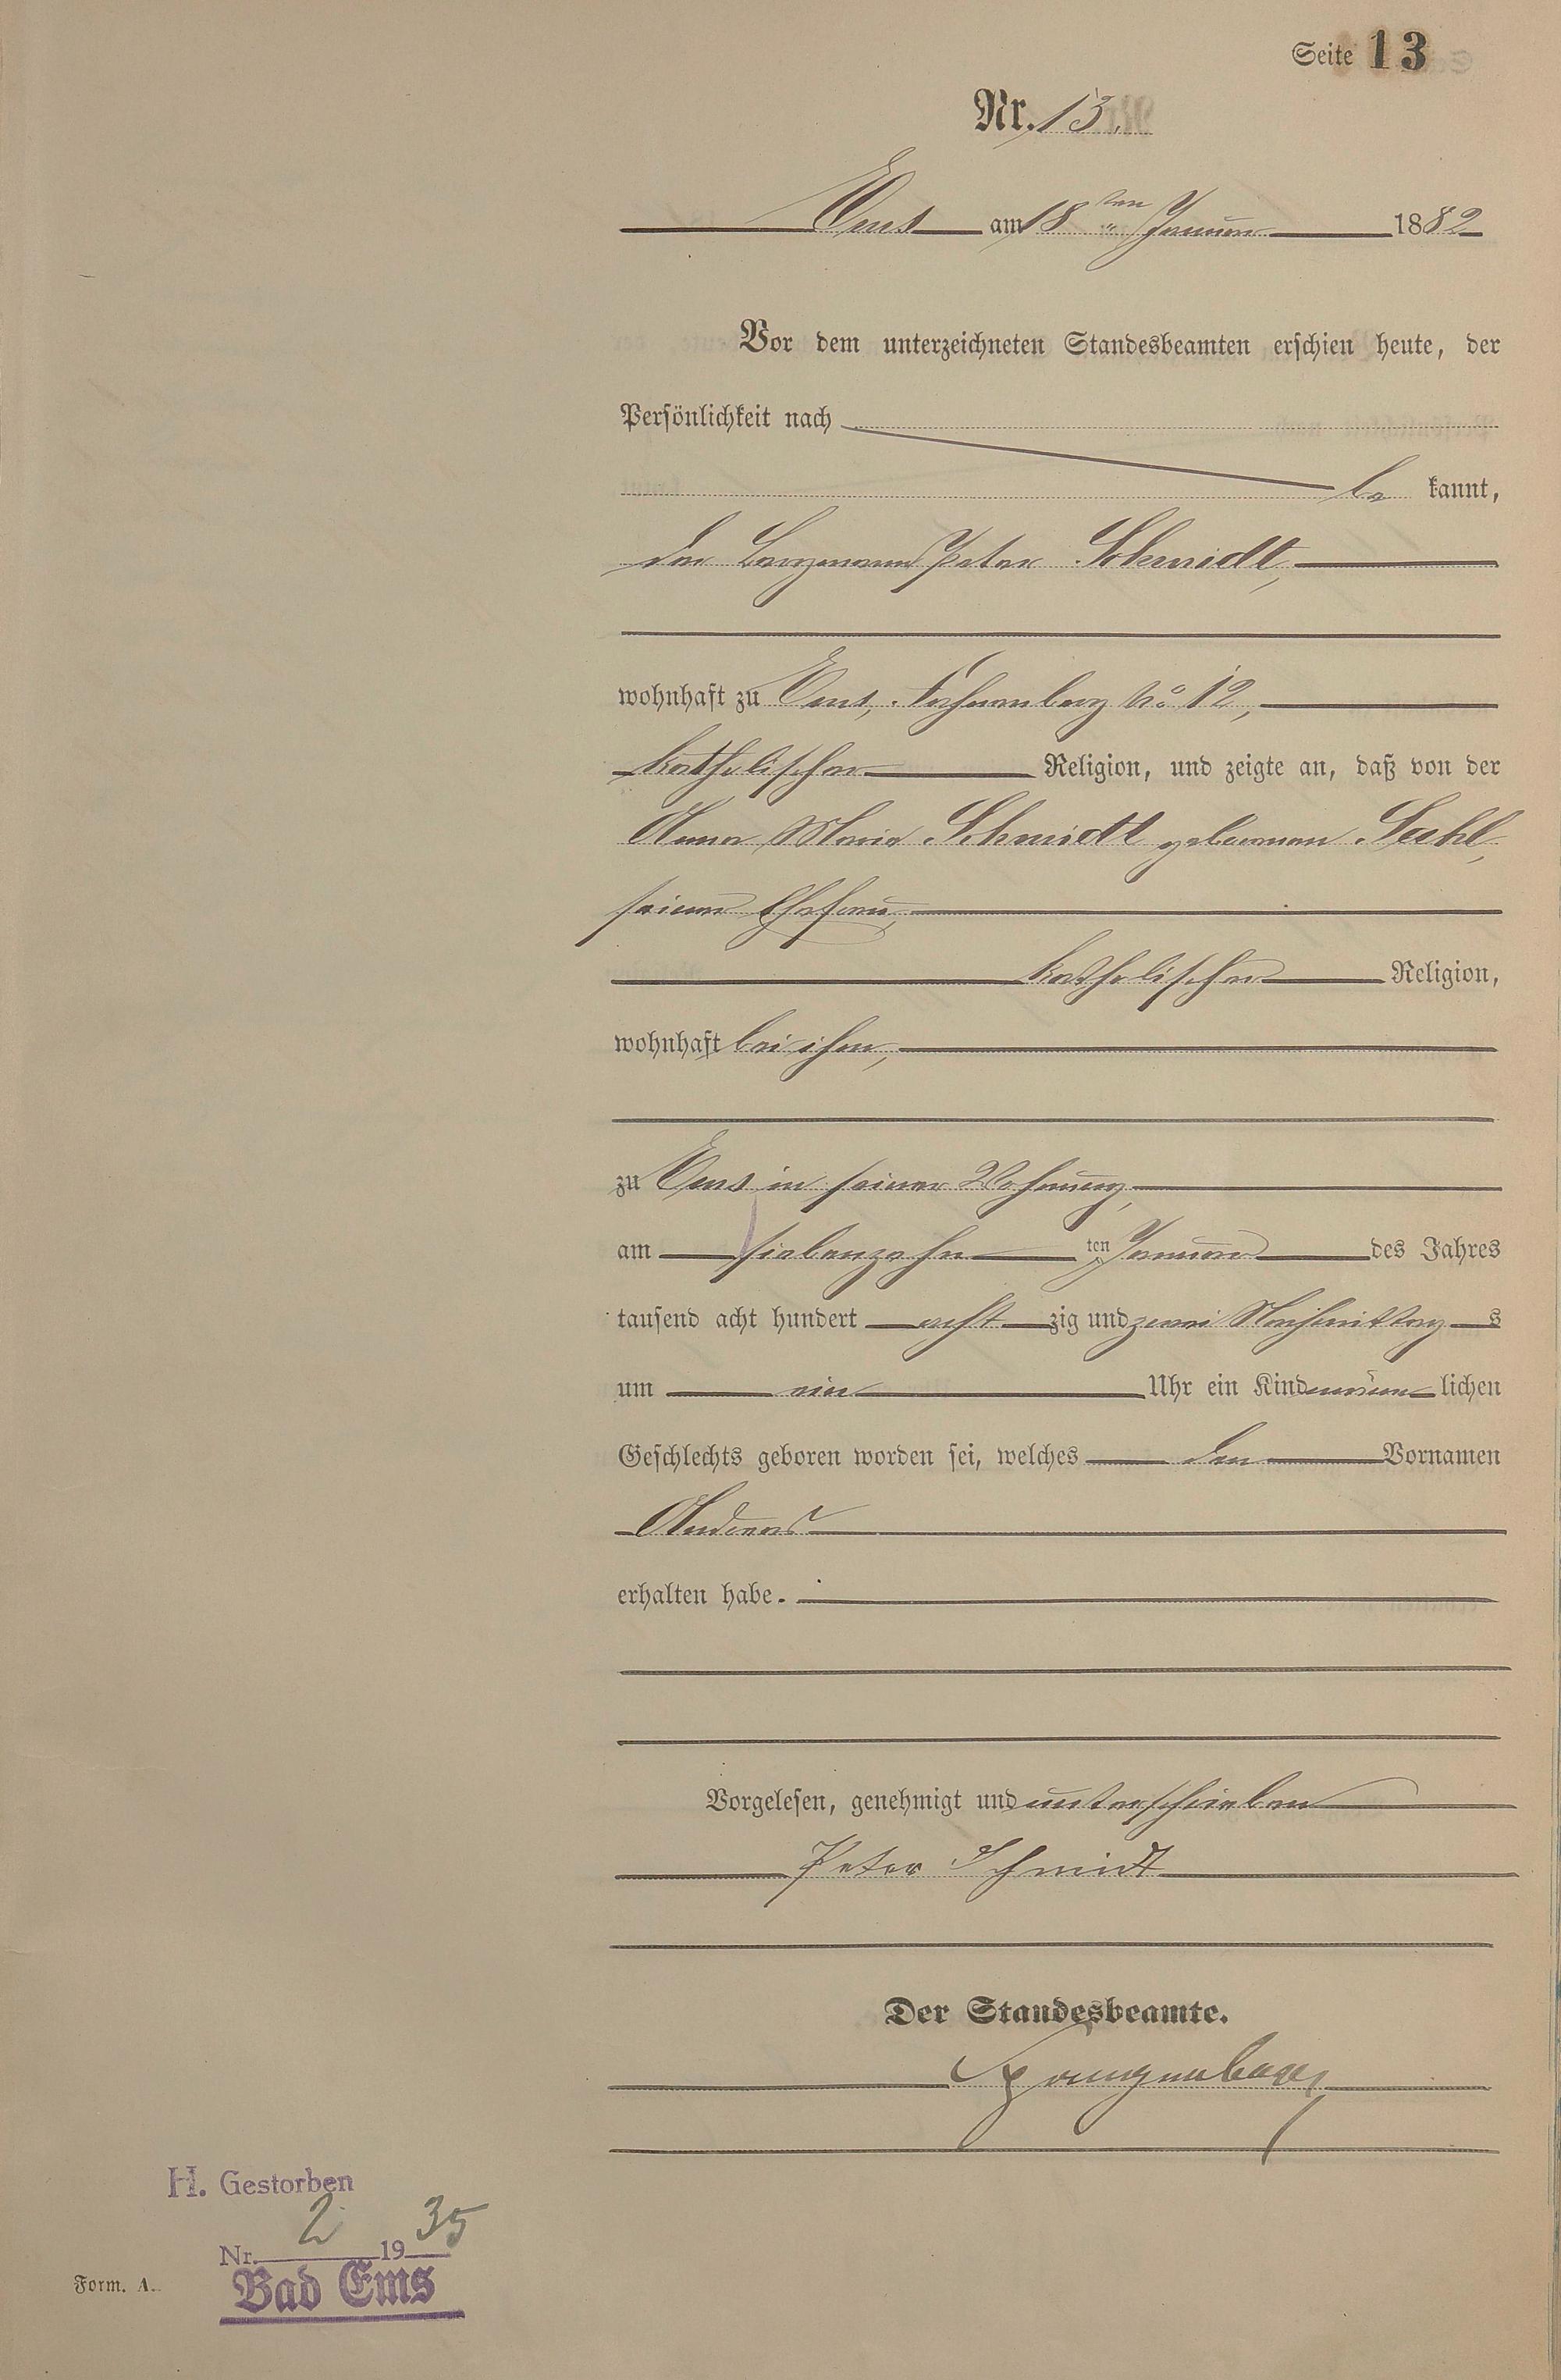 Seite 13
Nr. 13.
Ems am 18ten Januar 1882
Vor dem unterzeichneten Standesbeamten erschien heute, der
Persönlichkeit nach
be kannt,
der Bergmann Peter Schmidt,
wohnhaft zu Ems, No 12,
katholischer Religion, und zeigte an, daß von der
Anna Maria Schmidt geborenen
seiner Ehefrau,
katholischer Religion,
wohnhaft bei ihm,
zu Ems in seiner Wohnung,
am siebenzehn ten Januar des Jahres
tausend acht hundert acht zig und zwei Nachmittag s
um ein Uhr ein Kind männ lichen
Geschlechts geboren worden sei, welches den Vornamen
Andreas
erhalten habe.
Vorgelesen, genehmigt und unterschrieben
Peter Schmidt
Der Standesbeamte.
H. Gestorben
Nr. 2 1935
Bad Ems
Form. A.